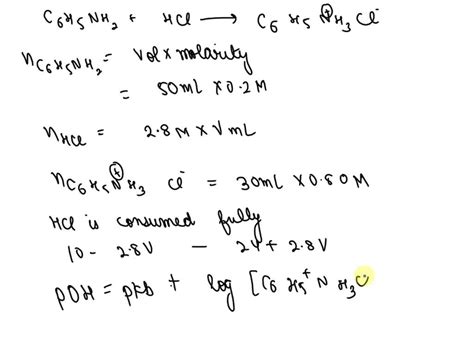 C6H5NH2 + HCl ⟶ C6H5N⊕H3Cl⁻
nC6H5NH2 = Vol × molarity
= 50mL × 0.2M
nHCl = 2.8M × V mL
nC6H5N⊕H3 Cl⁻ = 30mL × 0.80M
HCl is consumed fully
10 - 2.8V - 24 + 2.8V
pOH = pKb + log [C6H5⁺NH3Cl